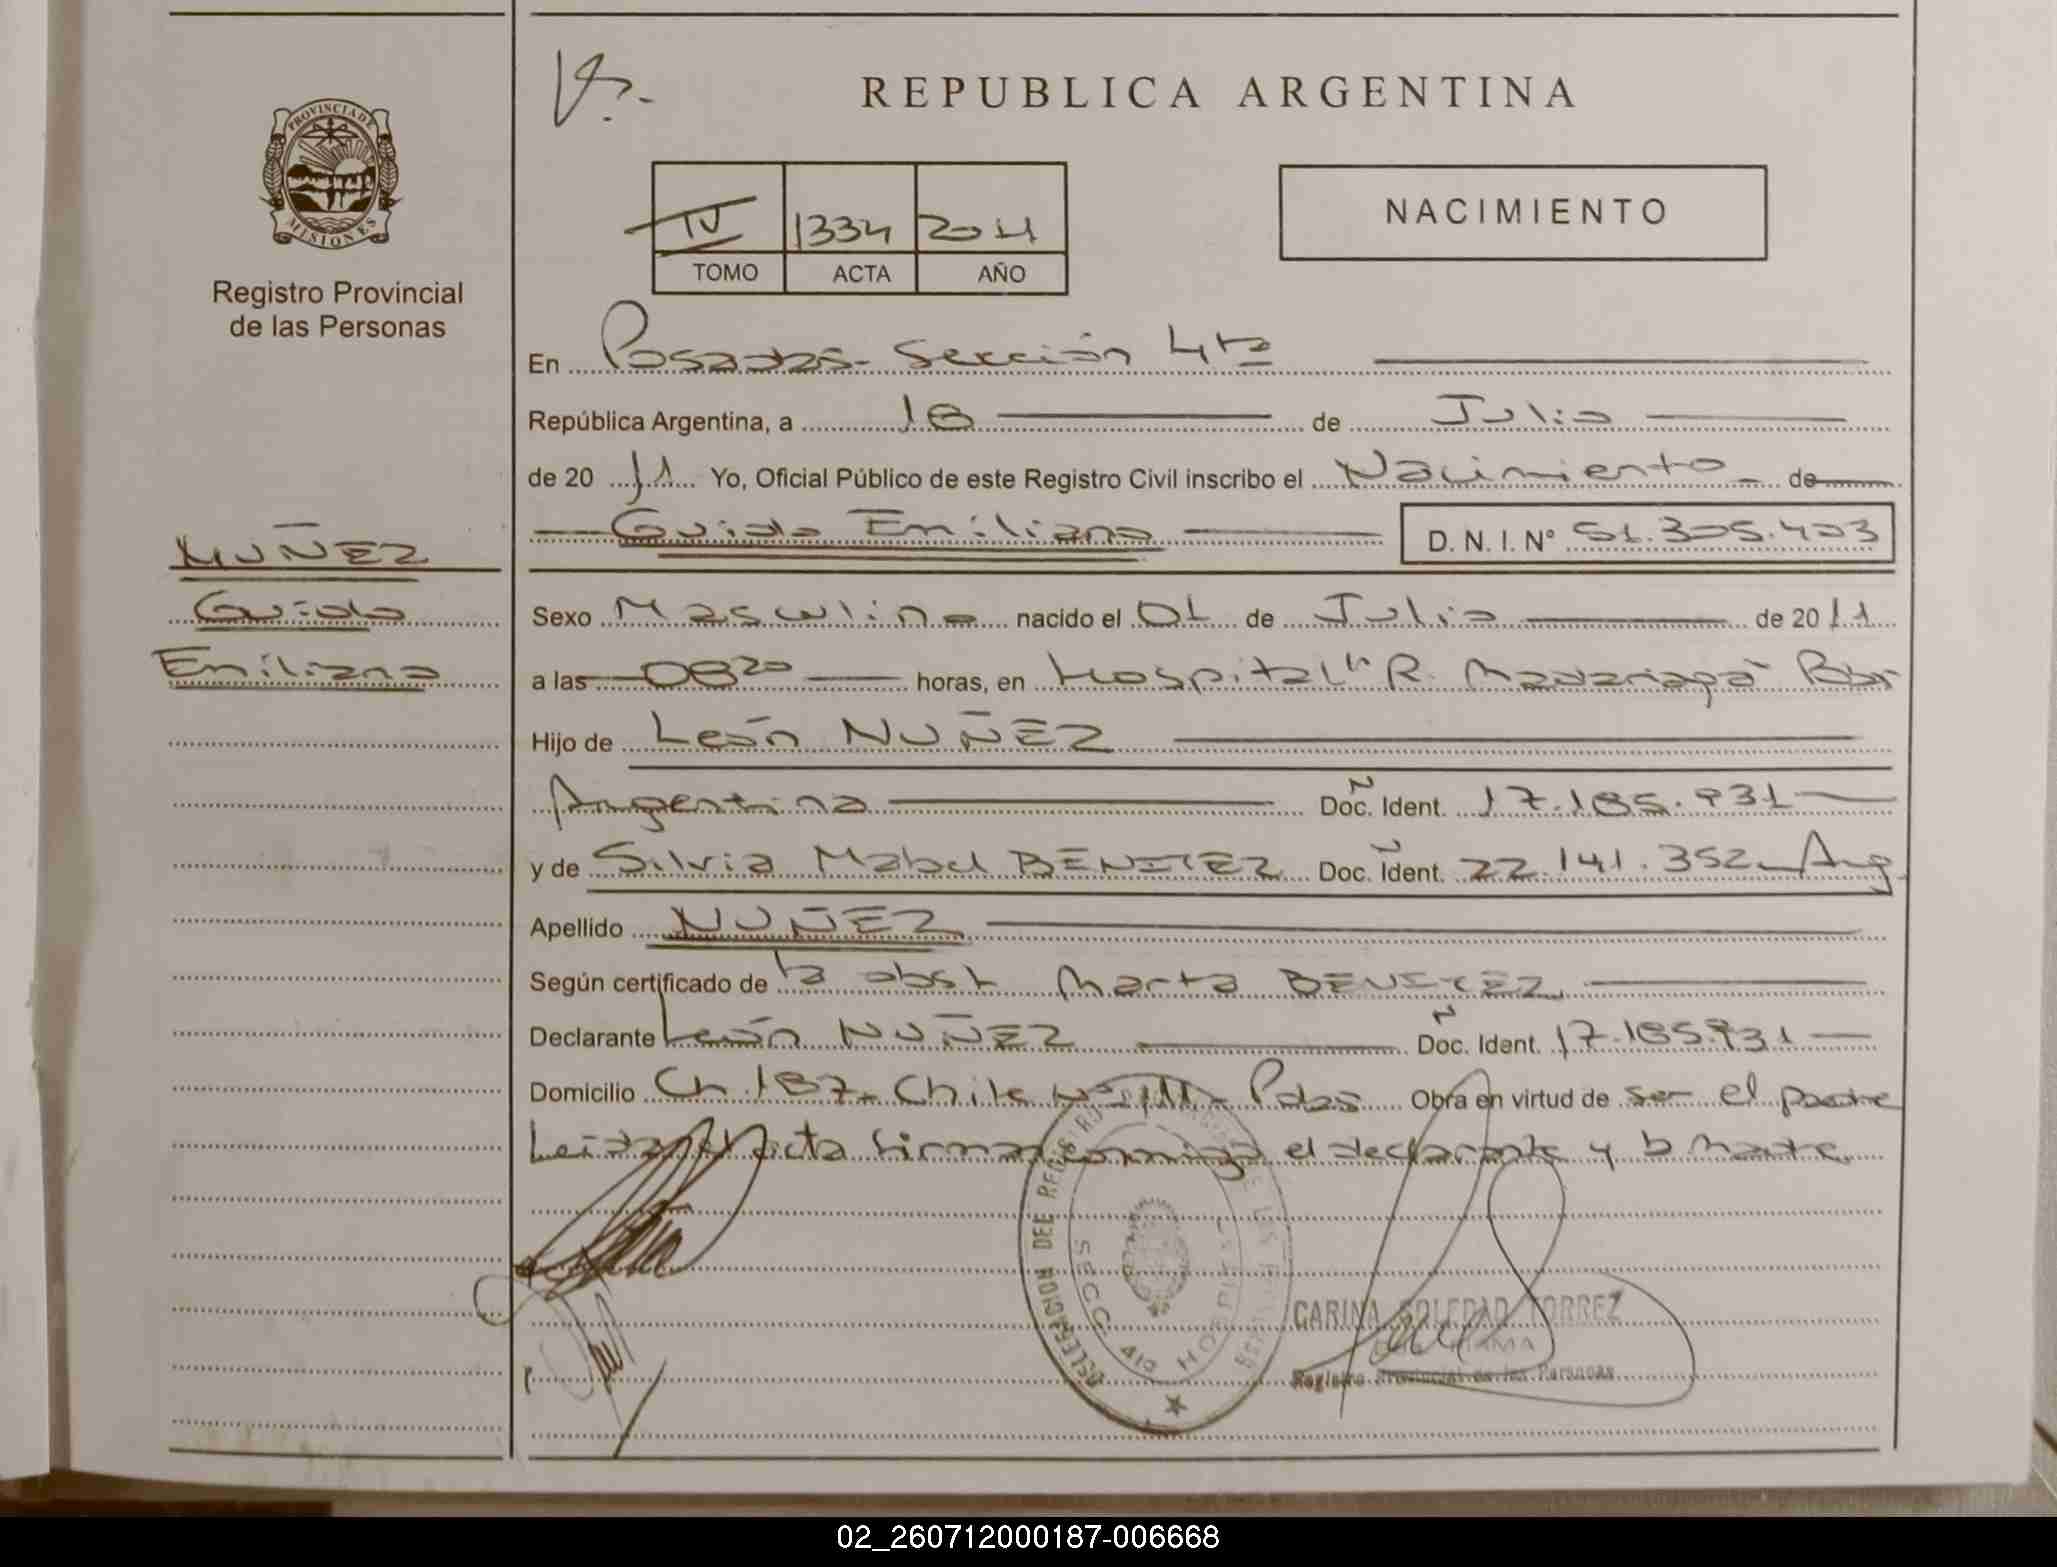 REPUBLICA ARGENTINA
PROVINCIA DE
MISIONES
Registro Provincial
de las Personas
IV 1334 2011
TOMO ACTA AÑO
NACIMIENTO
En Posadas - Sección 4ta
República Argentina, a 18 de Julio
de 20 11 Yo, Oficial Público de este Registro Civil inscribo el Nacimiento de
Guido Emiliano D. N. I. Nº 51.305.403
NUÑEZ
Guido
Emiliano
Sexo Masculino nacido el 01 de Julio de 20 11
a las 08 20 horas, en Hospital "R. Madariaga"
Hijo de León NUÑEZ
Argentina Doc. Ident. 17.185.931
y de Silvia Mabel BENITEZ Doc. Ident. 22.141.352 Arg.
Apellido NUÑEZ
Según certificado de la obst. Marta BENITEZ
Declarante León NUÑEZ Doc. Ident. 17.185.931
Domicilio Ch. 187 - Chile Pdas Obra en virtud de ser el padre
Leida el acta firman conmigo el declarante y la Madre
DELEGACION DEL REGISTRO
SECC. 4ta HOSPITAL
CARINA SOLEDAD TORREZ
FIRMA
Registro Provincial de las Personas
02_260712000187-006668